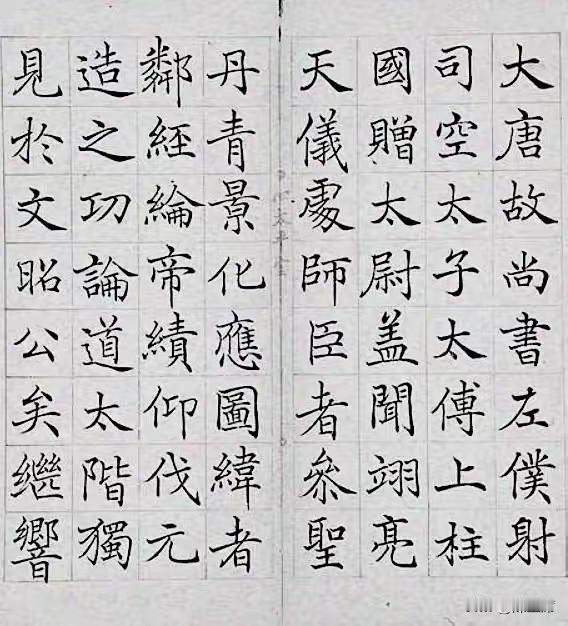 大唐故尚書左僕射
司空太子太傅上柱
國贈太尉盖聞翊亮
天儀處師臣者叅聖
丹青景化應圖緯者
鄰經綸帝績仰伐元
造之功論道太階獨
見於文昭公矣繼響